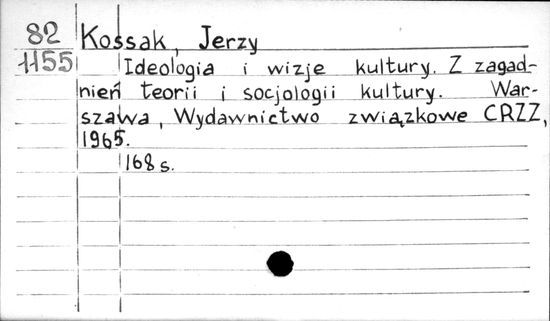 82
1155
Kossak, Jerzy
Ideologia i wizje kultury. Z zagad-
nień teorii i socjologii kultury. War-
szawa, Wydawnictwo związkowe CRZZ,
1965.
168 s.